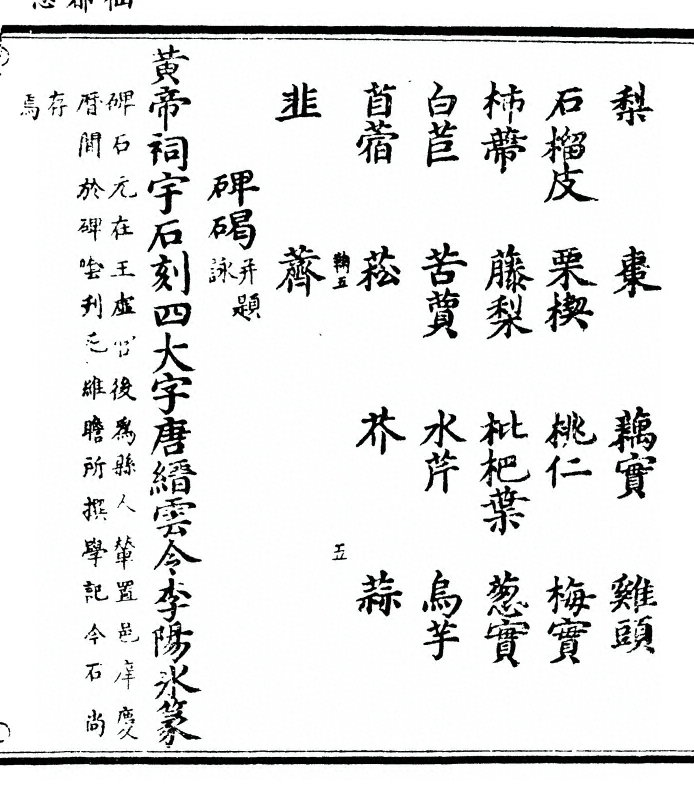 梨 棗 藕實 雞頭
石榴皮 栗楔 桃仁 梅實
柿蔕 藤梨 枇杷葉 葱實
白苣 苦蕒 水芹 烏芋
苜蓿 菘 芥 蒜
五
韭 薺
碑碣并題詠
黃帝祠宇石刻四大字唐縉雲令李陽冰篆
碑石元在玉虛宮後為縣人輦置邑庠慶
曆間於碑隂刊毛維瞻所撰學記今石尚
存焉